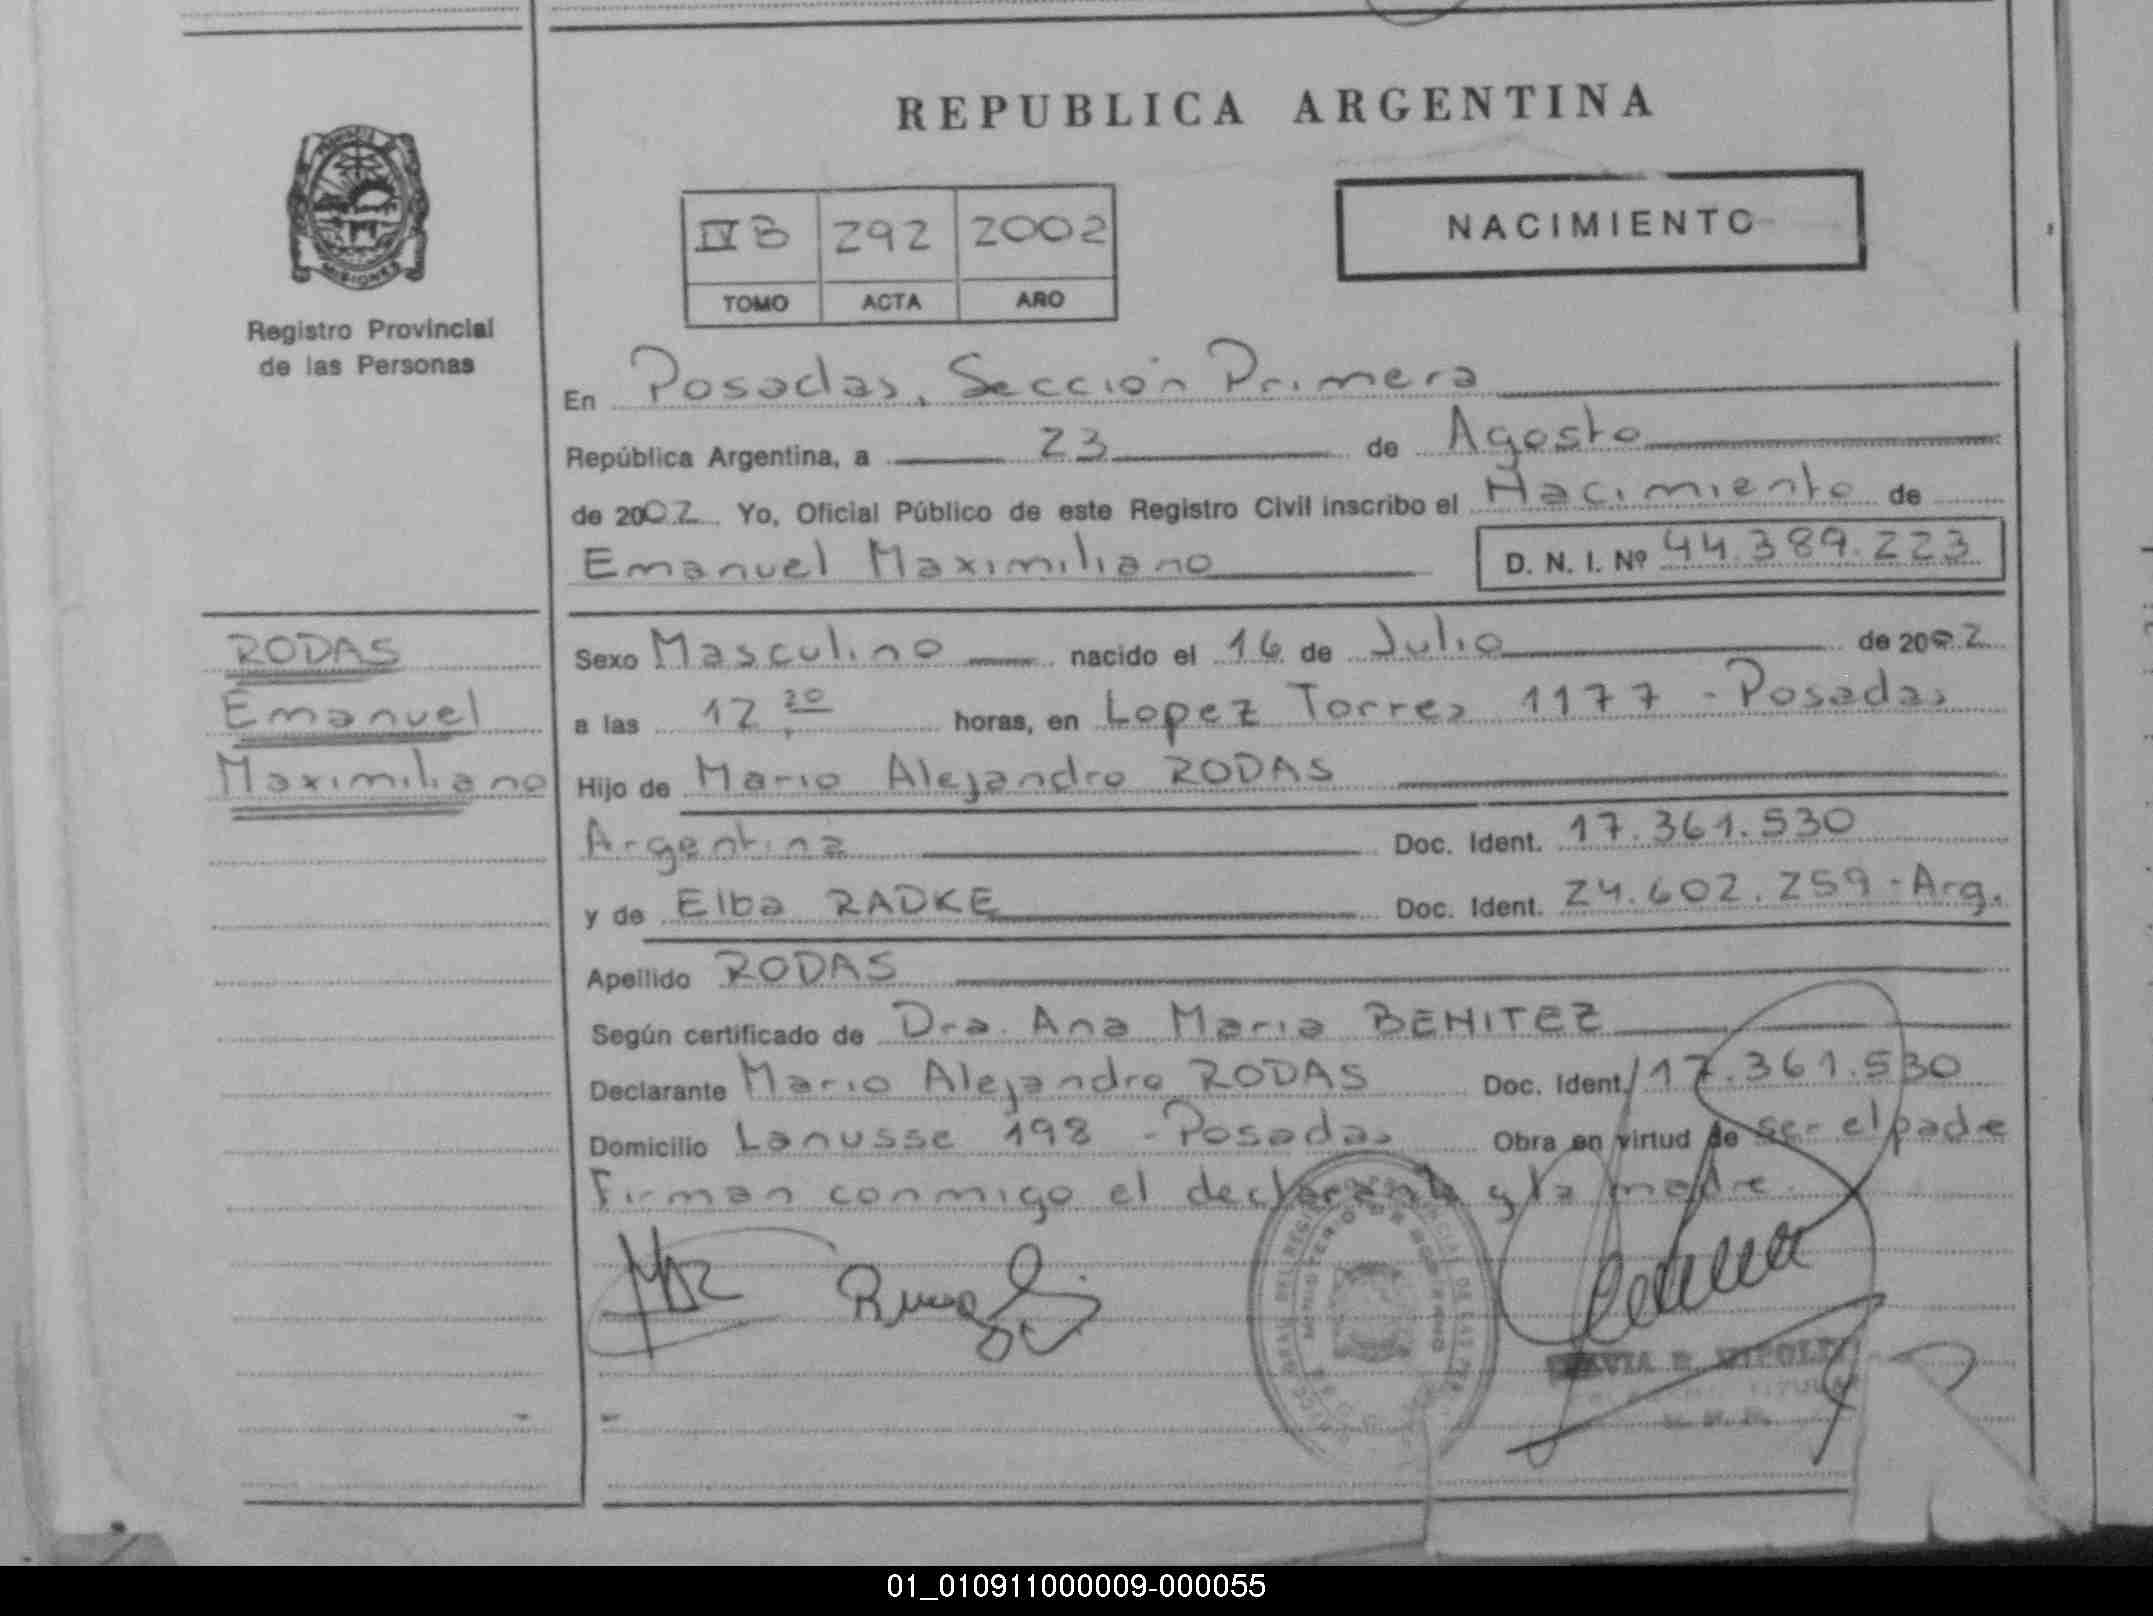 REPUBLICA ARGENTINA
MISIONES
Registro Provincial
de las Personas
IV B 292 2002
TOMO ACTA AÑO
NACIMIENTO
En Posadas, Sección Primera
República Argentina, a 23 de Agosto
de 2002 Yo, Oficial Público de este Registro Civil inscribo el Nacimiento de
Emanuel Maximiliano D. N. I. Nº 44.389.223
RODAS
Emanuel
Maximiliano
Sexo Masculino nacido el 16 de Julio de 2002
a las 12 horas, en Lopez Torres 1177 - Posadas
Hijo de Mario Alejandro RODAS
Argentina Doc. Ident. 17.361.530
y de Elba RADKE Doc. Ident. 24.602.259 - Arg.
Apellido RODAS
Según certificado de Dra. Ana Maria BENITEZ
Declarante Mario Alejandro RODAS Doc. Ident. 17.361.530
Domicilio Lanusse 198 - Posadas Obra en virtud de ser el padre
Firman conmigo el declarante y la madre.
01_010911000009-000055